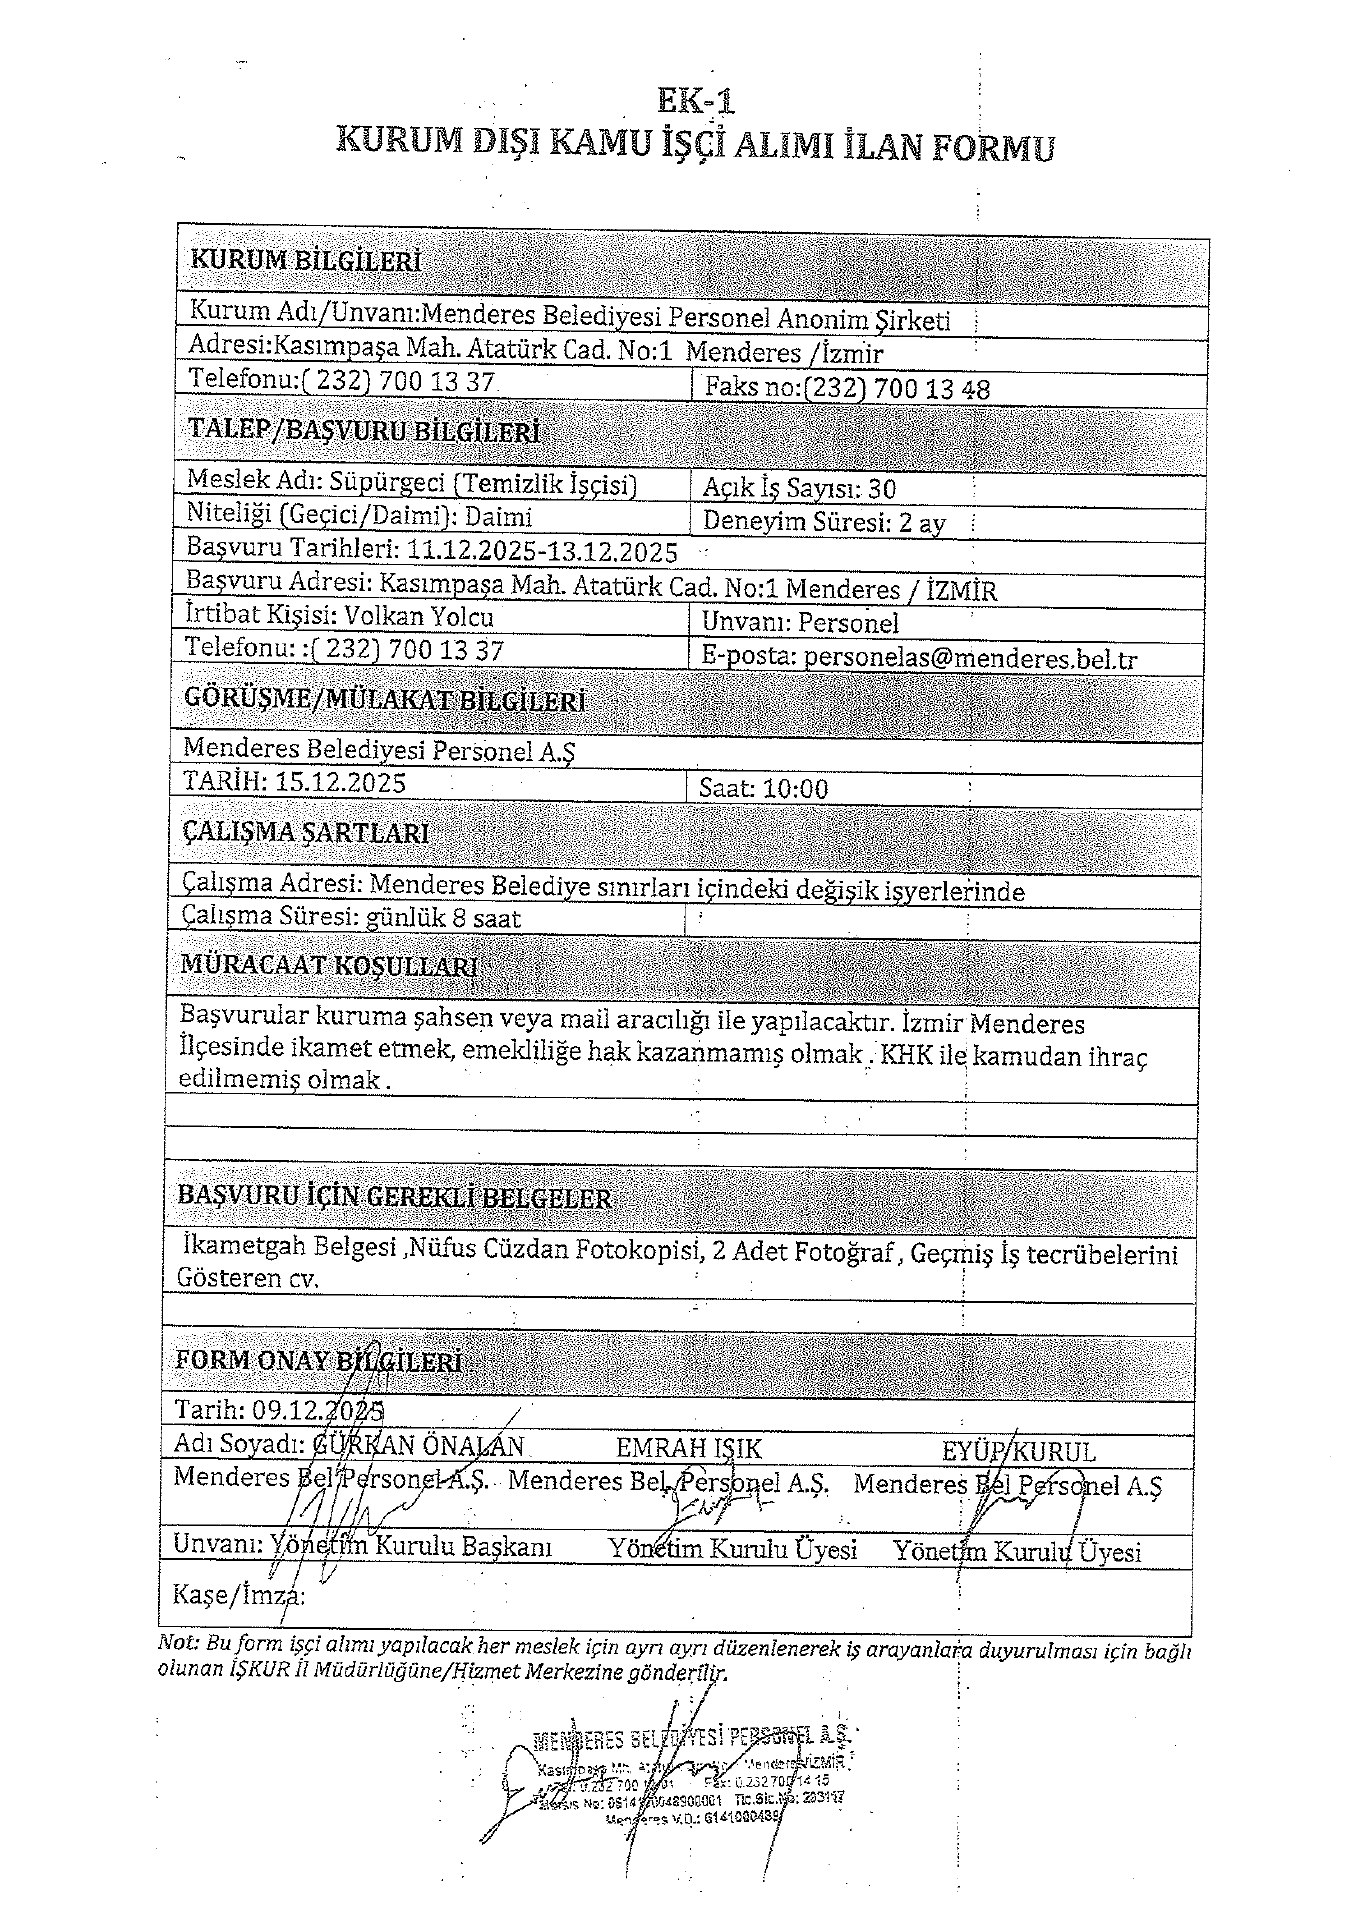 EK-1
KURUM DIŞI KAMU İŞÇİ ALIMI İLAN FORMU
KURUM BİLGİLERİ
Kurum Adı/Unvanı:Menderes Belediyesi Personel Anonim Şirketi
Adresi:Kasımpaşa Mah. Atatürk Cad. No:1 Menderes /İzmir
Telefonu:( 232) 700 13 37 Faks no:(232) 700 13 48
TALEP/BAŞVURU BİLGİLERİ
Meslek Adı: Süpürgeci (Temizlik İşçisi) Açık İş Sayısı: 30
Niteliği (Geçici/Daimi): Daimi Deneyim Süresi: 2 ay
Başvuru Tarihleri: 11.12.2025-13.12.2025
Başvuru Adresi: Kasımpaşa Mah. Atatürk Cad. No:1 Menderes / İZMİR
İrtibat Kişisi: Volkan Yolcu Unvanı: Personel
Telefonu: :( 232) 700 13 37 E-posta: personelas@menderes.bel.tr
GÖRÜŞME/MÜLAKAT BİLGİLERİ
Menderes Belediyesi Personel A.Ş
TARİH: 15.12.2025 Saat: 10:00
ÇALIŞMA ŞARTLARI
Çalışma Adresi: Menderes Belediye sınırları içindeki değişik işyerlerinde
Çalışma Süresi: günlük 8 saat
MÜRACAAT KOŞULLARI
Başvurular kuruma şahsen veya mail aracılığı ile yapılacaktır. İzmir Menderes
İlçesinde ikamet etmek, emekliliğe hak kazanmamış olmak . KHK ile kamudan ihraç
edilmemiş olmak .
BAŞVURU İÇİN GEREKLİ BELGELER
İkametgah Belgesi ,Nüfus Cüzdan Fotokopisi, 2 Adet Fotoğraf , Geçmiş İş tecrübelerini
Gösteren cv.
FORM ONAY BİLGİLERİ
Tarih: 09.12.2025
Adı Soyadı: GÜRKAN ÖNALAN EMRAH IŞIK EYÜP KURUL
Menderes Bel Personel A.Ş. Menderes Bel. Personel A.Ş. Menderes Bel Personel A.Ş
Unvanı: Yönetim Kurulu Başkanı Yönetim Kurulu Üyesi Yönetim Kurulu Üyesi
Kaşe/İmza:
Not: Bu form işçi alımı yapılacak her meslek için ayrı ayrı düzenlenerek iş arayanlara duyurulması için bağlı
olunan İŞKUR İl Müdürlüğüne/Hizmet Merkezine gönderilir.
MENDERES BELEDİYESİ PERSONEL A.Ş.
Menderes/İZMİR
Fax: 0.232 700 14 15
Tic.Sic.No: 203117
Menderes V.D.: